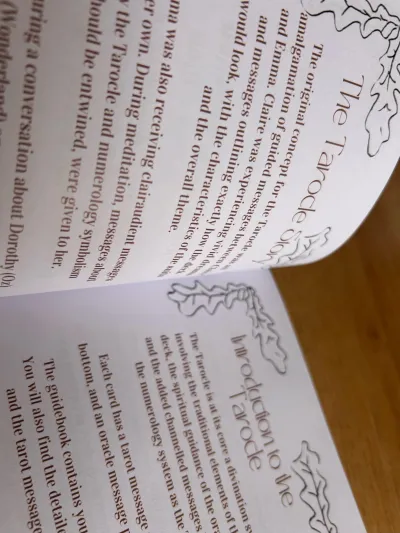 The Tarocle Story
The original concept for the Tarocle was
amalgamation of guided messages between
and Emma. Claire was experiencing vivid
and messages outlining exactly how the dec
would look, with the characteristics of the
and the overall theme.
ma was also receiving claircognizant messages
er own. During meditation, messages about
the Tarocle and numerology symbolism
hould be entwined, were given to her.
uring a conversation about Dorothy (Oz)
(Wonderland)
Introduction to the
Tarocle
The Tarocle is at its core a divination sy
involving the traditional elements of
deck, the spiritual guidance of the ora
and the added channelled messages
the numerology system as the
Each card has a tarot message
bottom, and an oracle message
The guidebook contains you
You will also find the detaile
and the tarot message